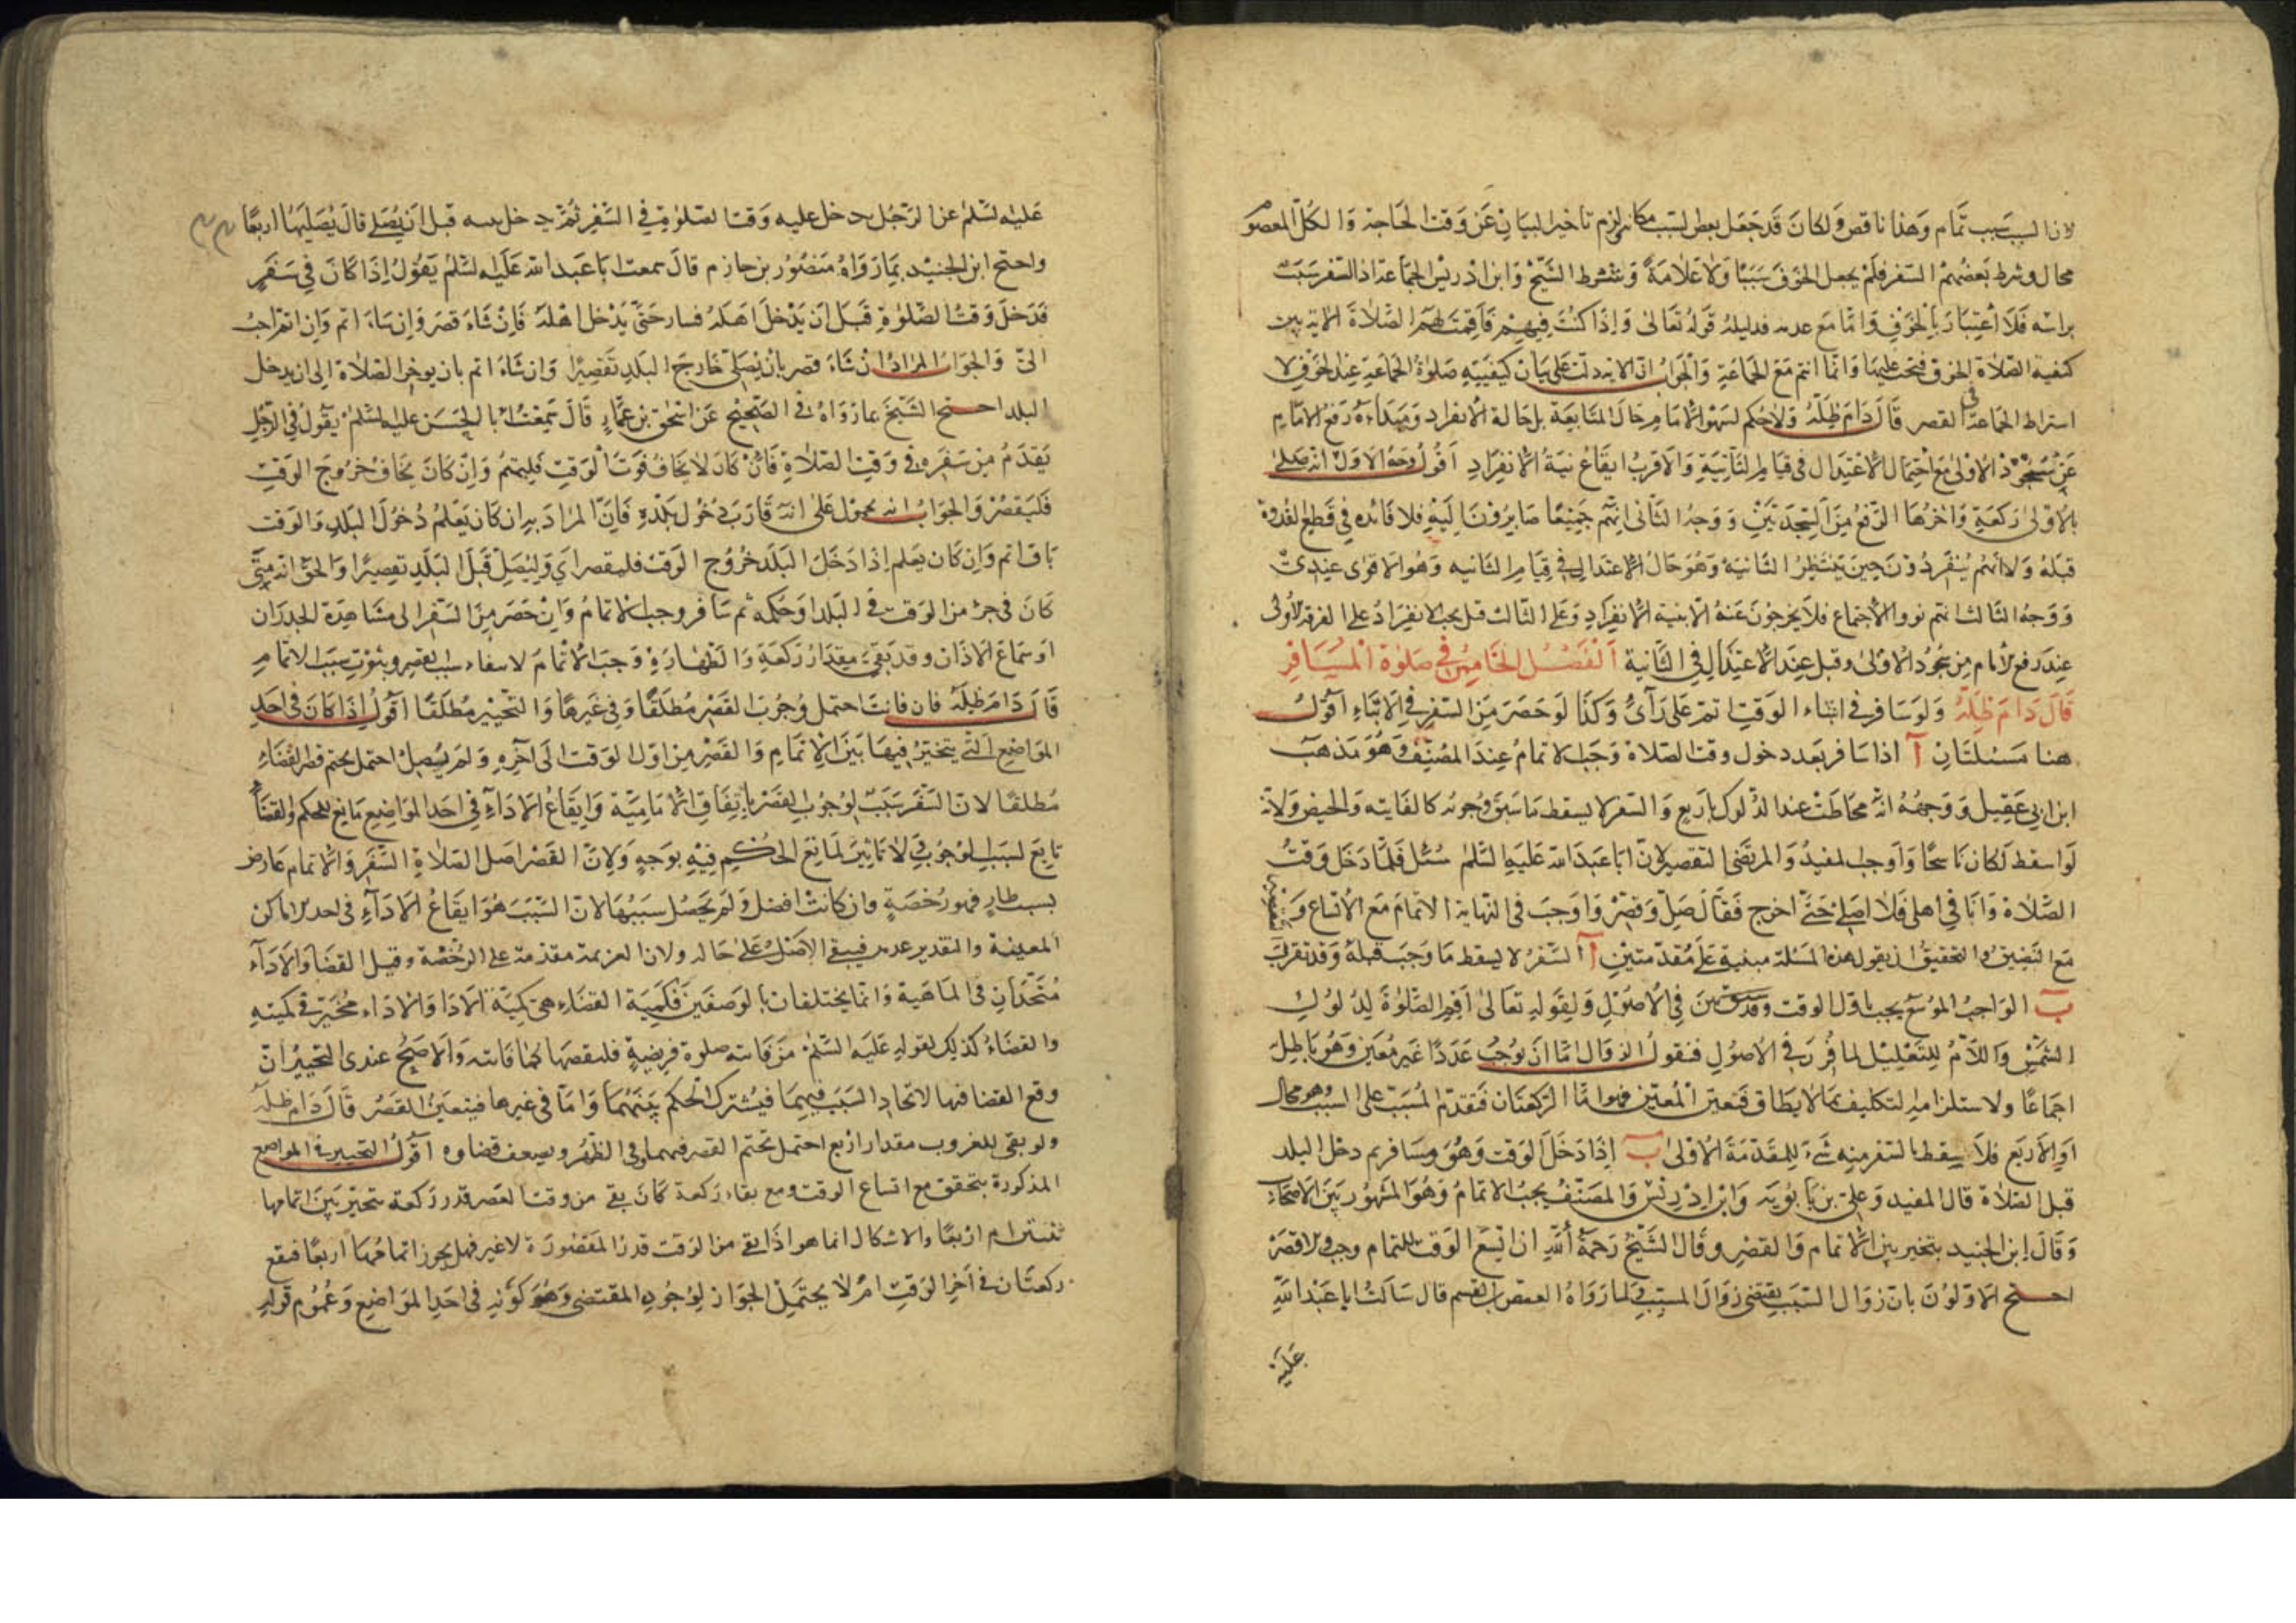 لان السبب سبب تمام وهذا ناقص ولكان قد جعل بعض السبب مكانه لزم تاخير البيان عن وقت الحاجة والكل المعصو
محال وشرط بعضهم السفر فلم يجعل الخوف سببا ولا علامة ولم يشترط الشيخ وابن ادريس الجماعة اذ السفر سبب
براسه فلا اعتبار بالخوف واما مع عدمه فدليله قوله تعالى واذا كنت فيهم فاقمت لهم الصلاة الاية بين
كيفية الصلاة الخوف فيجب عليها وانما انتم مع الجماعة والجواب ان الاية دلت على بيان كيفية صلوة الجماعة عند الخوف لا
اشتراط الجماعة في القصر قال دام ظله ولا حكم لسهو الامام حال المتابعة بل حالة الانفراد ومبداءه رفع الامام
عن سجود الاولى مع احتمال الاعتدال في قيام الثانية والاقرب ايقاع نية الانفراد اقول وجه الاول انه صلى
بالاولى ركعة واخرها الرفع من السجدتين ووجه الثاني انهم جميعا صايرون اليه فلا فائدة في قطع القدوة
قبله ولانهم ينفردون حين ينتظر الثانية وهو حال الاعتدال في قيام الثانيه وهو الاقوى عندى
ووجه الثالث انهم نووا الاجتماع فلا يخرجون عنه الا بنية الانفراد وعلى الثالث قيل يجب الانفراد على الفرقة الاولى
عند رفع الامام من سجود الاولى وقيل عند الاعتدال في الثانية الفصل الخامس في صلوة المسافر
قال دام ظله ولو سافر في اثناء الوقت اتم على رأى وكذا لو حضر من السفر في الاثناء اقول
هنا مسئلتان آ اذا سافر بعد دخول وقت الصلاة وجب الاتمام عند المصنف وهو مذهب
ابن ابي عقيل ووجهه انه مخاطب عند الدلوك باربع والسفر لا يسقط ما سبق وجوبه كالفايته والحيض ولانه
لو اسقط لكان ناسخا واوجب المفيد والمرتضى التقصير لان ابا عبد الله عليه السلم سئل فلما دخل وقت
الصلاة وانا في اهلى فلا اصلى حتى اخرج فقال صل وقصر واوجب في النهاية الاتمام مع الاتساع و
التقصير
مع التضيق والتحقيق ان يقول هذه المسئلة مبنية على مقدمتين آ السفر لا يسقط ما وجب قبله وقد تقرر
ب الواجب الموسع يجب باول الوقت وقد سبق بين في الاصول ولقوله تعالى اقم الصلوة لدلوك
الشمس واللام للتعليل لما قرر في الاصول فنقول الزوال اما ان يوجب عددا غير معين وهو باطل
اجماعا ولاستلزامه التكليف بما لا يطاق فتعين المعين فهو اما الركعتان فتقدم المسبب على السبب وهو محال
او الاربع فلا يسقط بالسفر منه شىء للمقدمة الاولى ب اذا دخل الوقت وهو مسافر ثم دخل البلد
قبل الصلاة قال المفيد وعلي بن بابويه وابن ادريس والمصنف يجب الاتمام وهو المشهور بين الاصحاب
وقال ابن الجنيد يتخير بين الاتمام والقصر وقال الشيخ رحمة الله ان اتسع الوقت للتمام وجب والا قصر
احتج الاولون بان زوال السبب يقتضى زوال المسبب ولما رواه العيص بن القسم قال سالت ابا عبد الله
عليه
عليه السلم عن الرجل يدخل عليه وقت الصلوة في السفر ثم يدخل بيته قبل ان يصلى قال يصليها اربعا
واحتج ابن الجنيد بما رواه منصور بن حازم قال سمعت ابا عبد الله عليه السلم يقول اذا كان في سفر
فدخل وقت الصلوة قبل ان يدخل اهله فسار حتى يدخل اهله فان شاء قصر وان شاء اتم وان اتم احب
الى والجواب المراد ان شاء قصر بان يصلى خارج البلد تقصيرا وان شاء اتم بان يوخر الصلاة الى ان يدخل
البلد احتج الشيخ بما رواه في الصحيح عن اسحق بن عمار قال سمعت ابا الحسن عليه السلم يقول في الرجل
يقدم من سفره في وقت الصلاة فان كان لا يخاف فوت الوقت فليتم وان كان يخاف خروج الوقت
فليقصر والجواب انه محمول على انه قارب دخول بلده فان المراد به ان كان يعلم دخول البلد والوقت
باق اتم وان كان يعلم اذا دخل البلد خروج الوقت فليقصر اي وليصل قبل البلد تقصيرا والحق انه متى
كان في جزء من الوقت في البلد او حكمه ثم سافر وجب الاتمام وان حضر من السفر الى مشاهدة الجدران
او سماع الاذان وقد بقى مقدار ركعة والطهارة وجب الاتمام لانتفاء سبب القصر وثبوت سبب الاتمام
قال دام ظله فان فاتت احتمل وجوب القصر مطلقا وفي غيرها والتخيير مطلقا اقول اذا كان في احد
المواضع التي يتخير فيها بين الاتمام والقصر من اول الوقت الى آخره ولم يصل احتمل تحتم قصر القضاء
مطلقا لان السفر سبب لوجوب القصر باتفاق الامامية وايقاع الاداء في احد المواضع مانع للحكم والقضاء
تابع لسبب الوجوب لا تاثير لمانع الحكم فيه بوجه ولان القصر اصل الصلاة السفر والاتمام عارض
بسبب طار فهو رخصة وان كانت افضل ولم يحصل سببها لان السبب هو ايقاع الاداء في احد الاماكن
المعينة والتقدير عدمه فيبقى الاصل على حاله ولان العزيمة مقدمة على الرخصة وقيل القضا والاداء
متحدان في الماهية وانما يختلفان بالوصفين فكمية القضاء هى كمية الادا والاداء مخير في كميته
والقضاء كذلك لقوله عليه السلم من فاتته صلوة فريضة فليقضها كما فاتته والاصح عندى التخيير ان
وقع القضا فيها لاتحاد السبب فيهما فيشترك الحكم بينهما واما في غيرها فيتعين القصر قال دام ظله
ولو بقى للغروب مقدار اربع احتمل تحتم القصر فيهما وفي الظهر ويضعف قضاوه اقول التخيير في المواضع
المذكورة يتحقق مع اتساع الوقت ومع بقاء ركعة كان بقى من وقت العصر قدر ركعة يتخير بين اتمامها
اربعا والاشكال انما هو اذا بقى من الوقت قدر المقصورة لا غير فهل يجوز اتمامهما اربعا فيقع
ركعتان في آخر الوقت ام لا يحتمل الجواز لوجود المقتضى وهو كونه في احد المواضع وعموم قوله